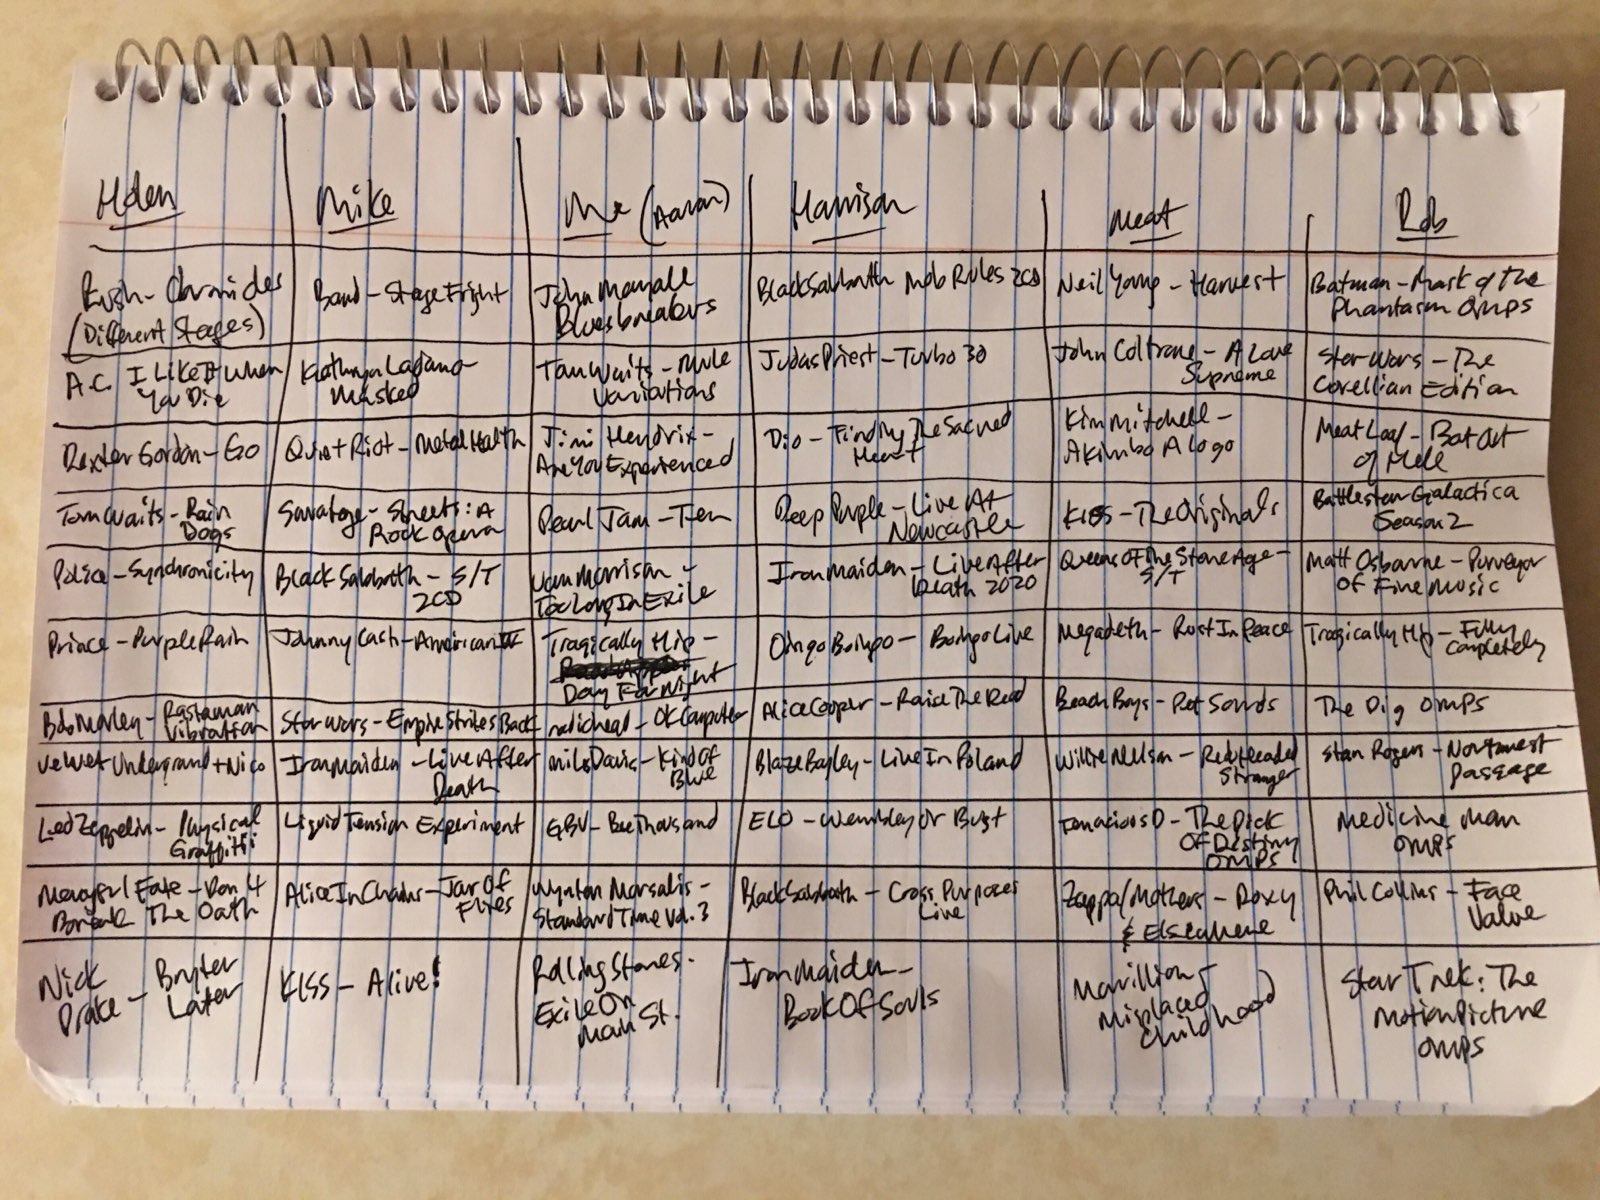 Mike
Me (Aaron)
Harrison
Meat
Rob
Rush - Chronicles
(Different Stages)
Band - Stage Fright
John Mayall
Bluesbreakers
Black Sabbath Mob Rules 2CD
Neil Young - Harvest
Batman - Mask of the
Phantasm OMPS
A.C. I Like It When
You Die
Masked
Tom Waits - Mule
Variations
Judas Priest - Turbo 30
John Coltrane - A Love
Supreme
Star Wars - The
Corellian Edition
Dexter Gordon - Go
Quiet Riot - Metal Health
Jimi Hendrix -
Are You Experienced
Dio - Finding The Sacred
Heart
Kim Mitchell -
Akimbo Alogo
Meat Loaf - Bat Out
of Hell
Tom Waits - Rain
Dogs
Savatage - Streets: A
Rock Opera
Pearl Jam - Ten
Deep Purple - Live At
Newcastle
KISS - The Originals
Battlestar Galactica
Season 2
Police - Synchronicity
Black Sabbath - S/T
2CD
Van Morrison -
Too Long In Exile
Iron Maiden - Live After
Death 2020
Queens Of The Stone Age -
S/T
Matt Osbourne - Purveyor
Of Fine Music
Prince - Purple Rain
Johnny Cash - American IV
Tragically Hip -
Day For Night
Oingo Boingo - Boingo Live
Megadeth - Rust In Peace
Tragically Hip - Fully
Completely
Bob Marley - Rastaman
Vibration
Star Wars - Empire Strikes Back
Radiohead - OK Computer
Alice Cooper - Raise The Dead
Beach Boys - Pet Sounds
The Dig OMPS
Velvet Underground + Nico
Iron Maiden - Live After
Death
Miles Davis - Kind Of
Blue
Blaze Bayley - Live In Poland
Willie Nelson - Red Headed
Stranger
Stan Rogers - Northwest
Passage
Led Zeppelin - Physical
Graffiti
Liquid Tension Experiment
GBV - Bee Thousand
ELO - Wembley Or Bust
Tenacious D - The Pick
Of Destiny
OMPS
Medicine Man
OMPS
Mercyful Fate - Don't
Break The Oath
Alice In Chains - Jar Of
Flies
Wynton Marsalis -
Standard Time Vol. 3
Black Sabbath - Cross Purposes
Live
Zappa/Mothers - Roxy
& Elsewhere
Phil Collins - Face
Value
Nick
Drake - Bryter
Later
KISS - Alive!
Rolling Stones -
Exile On
Main St.
Iron Maiden -
Book Of Souls
Marillion -
Misplaced
Childhood
Star Trek: The
Motion Picture
OMPS